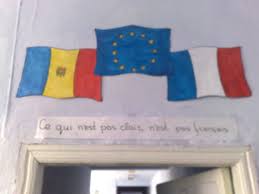 Ce qui n'est pas clair, n'est pas français